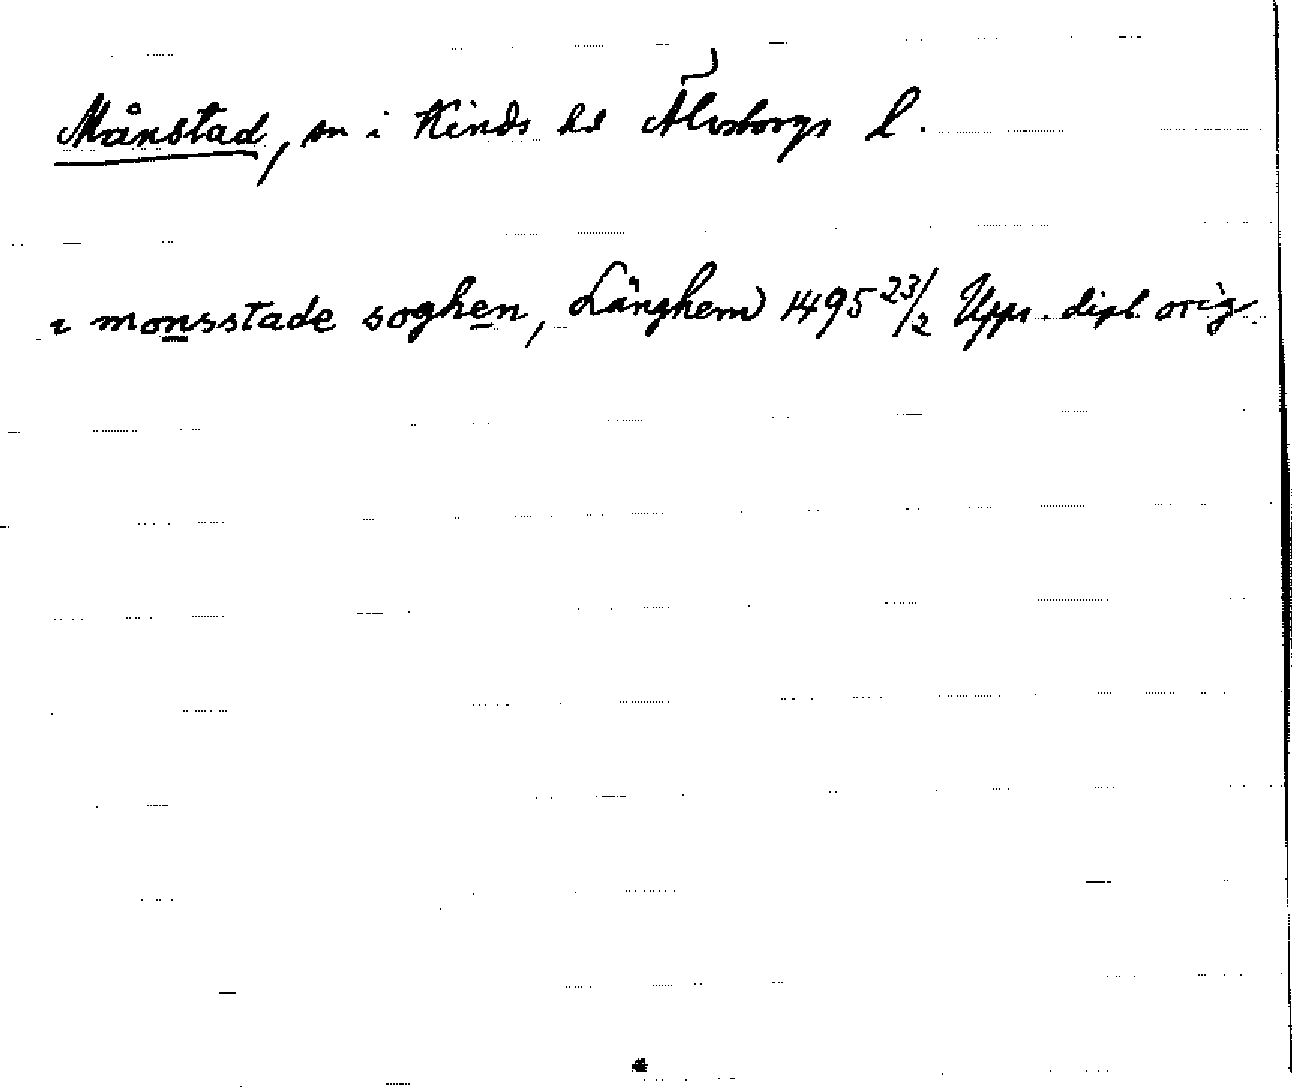 Månstad, sn i Kinds hd Älvsborgs l.
i monsstade soghen, Länghem 1495 23/2 Upps. dipl. orig.